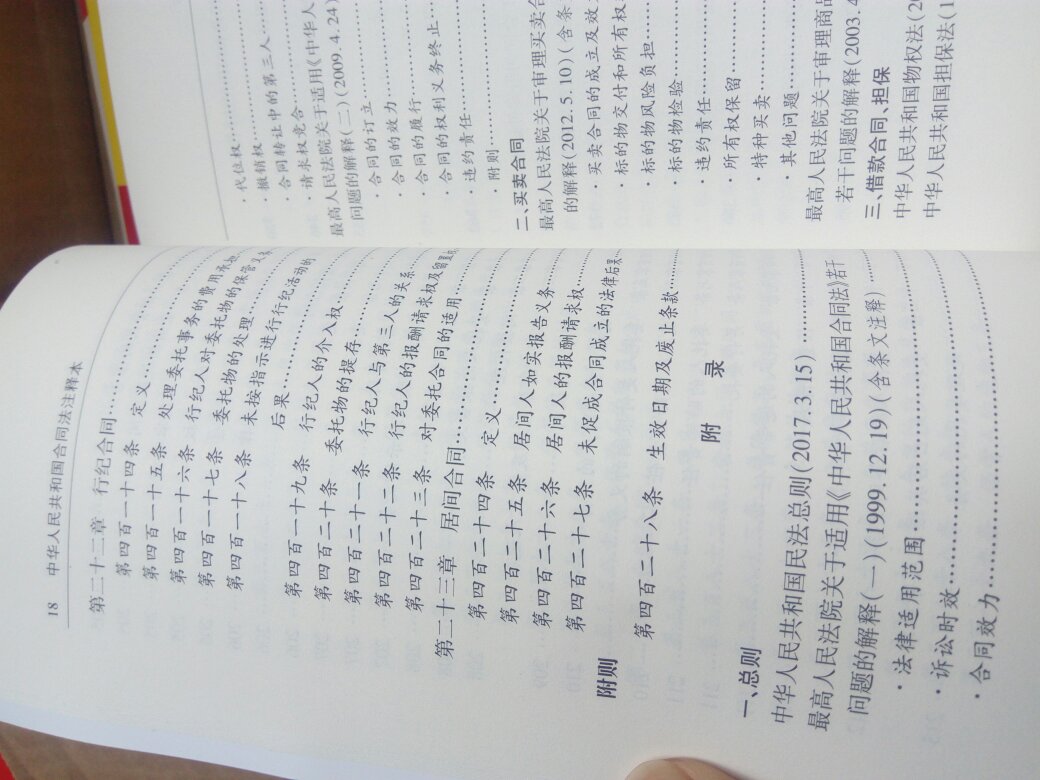 18 中华人民共和国合同法注释本
第二十二章 行纪合同
第四百一十四条 定义
第四百一十五条 处理委托事务的费用承担
第四百一十六条 行纪人对委托物的保管义务
第四百一十七条 委托物的处理
第四百一十八条 未按指示进行行纪活动的
后果
第四百一十九条 行纪人的介入权
第四百二十条 委托物的提存
第四百二十一条 行纪人与第三人的关系
第四百二十二条 行纪人的报酬请求权及留置权
第四百二十三条 对委托合同的适用
第二十三章 居间合同
第四百二十四条 定义
第四百二十五条 居间人如实报告义务
第四百二十六条 居间人的报酬请求权
第四百二十七条 未促成合同成立的法律后果
附则
第四百二十八条 生效日期及废止条款
附 录
一、总则
中华人民共和国民法总则(2017.3.15)
最高人民法院关于适用《中华人民共和国合同法》若干
问题的解释(一)(1999.12.19)(含条文注释)
·法律适用范围
·诉讼时效
·合同效力
·代位权
·撤销权
·合同转让中的第三人
·请求权竞合
最高人民法院关于适用《中华人
问题的解释(二)(2009.4.24)
·合同的订立
·合同的效力
·合同的履行
·合同的权利义务终止
·违约责任
·附则
二、买卖合同
最高人民法院关于审理买卖合
的解释(2012.5.10)(含条
·买卖合同的成立及效力
·标的物交付和所有权
·标的物风险负担
·标的物检验
·违约责任
·所有权保留
·特种买卖
·其他问题
最高人民法院关于审理商品
若干问题的解释(2003.4
三、借款合同、担保
中华人民共和国物权法(20
中华人民共和国担保法(1